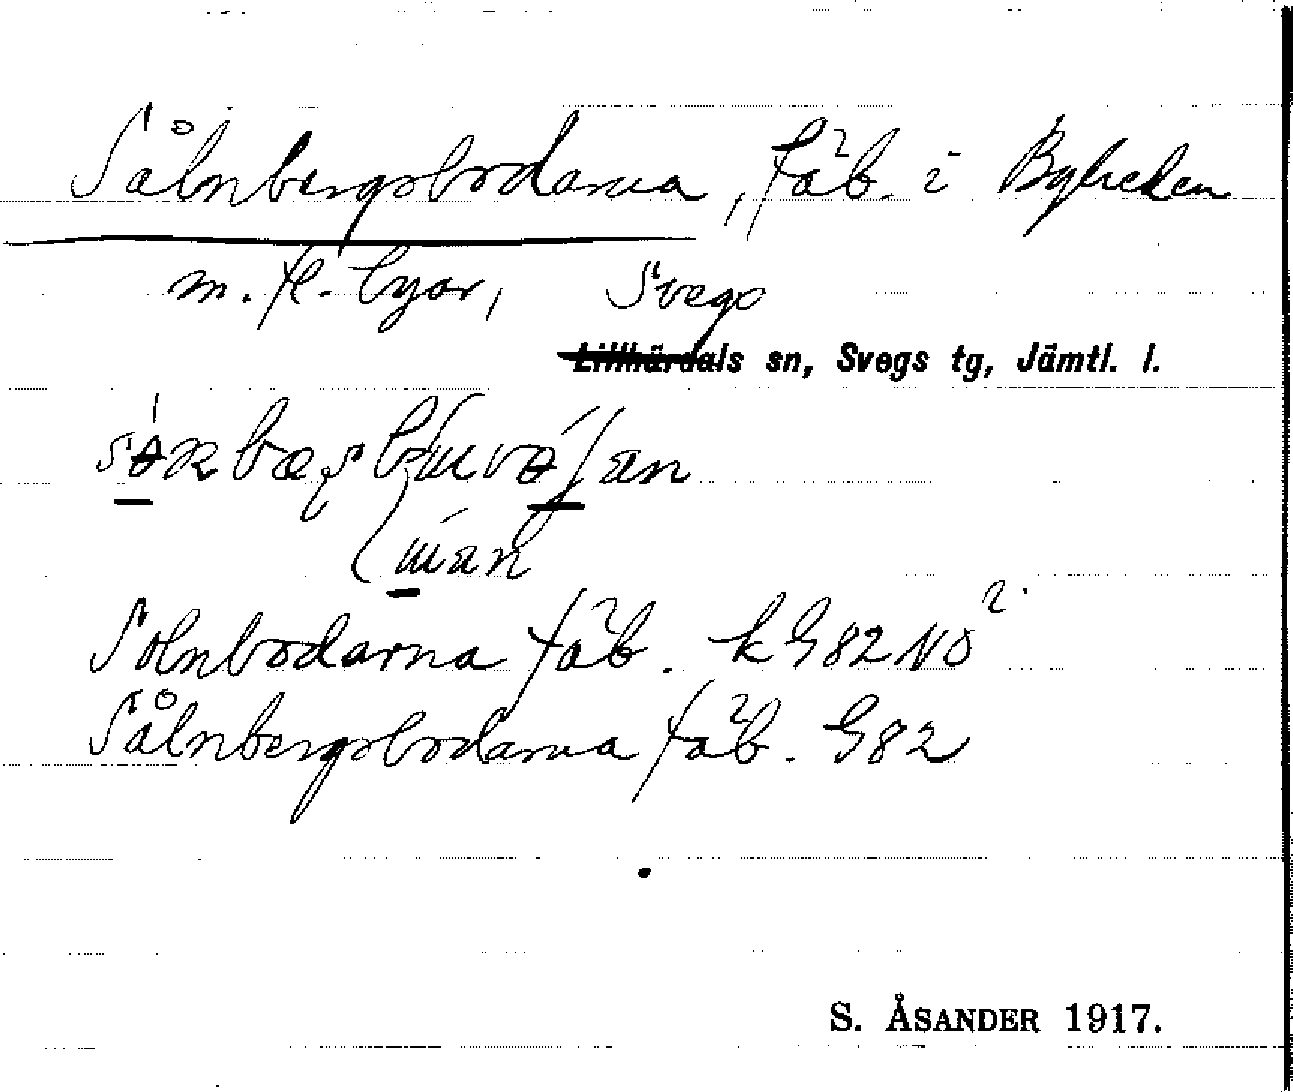 Sålnbergsbodarna, fäb. i Byheden
m. fl. byar, Svegs
Lillhärdals sn, Svegs tg, Jämtl. l.
Solnbodarna fäb. k G82 NO
Sålnbergsbodarna fäb. G82
S. ÅSANDER 1917.